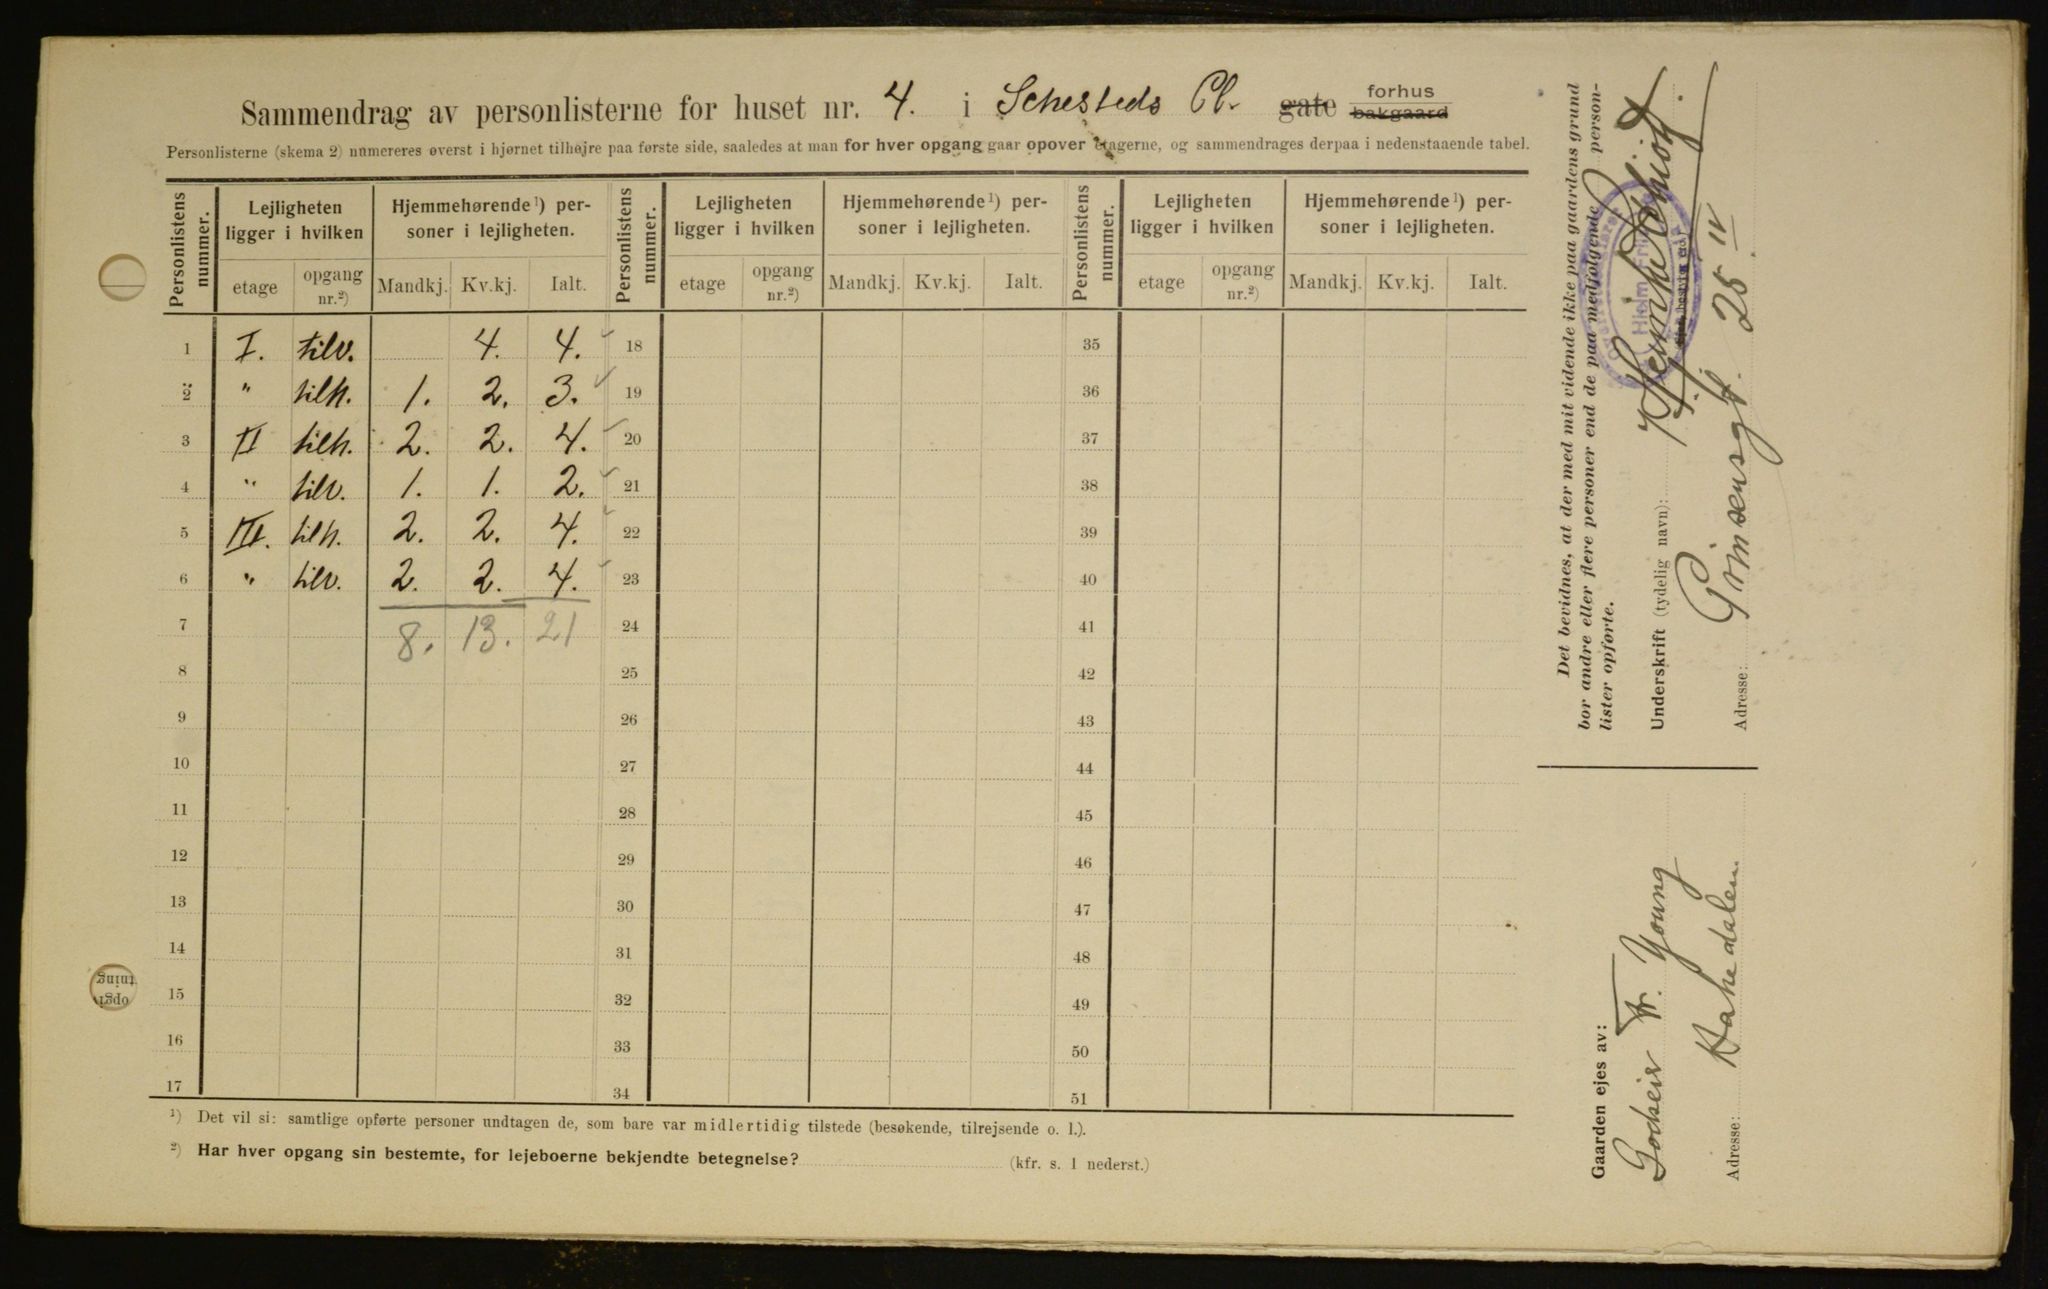 Sammendrag av personlisterne for huset nr. 4. i Schesteds Pl. gate forhus bakgaard
Personlisterne (skema 2) numereres øverst i hjørnet tilhøjre paa første side, saaledes at man for hver opgang gaar opover etagerne, og sammendrages derpaa i nedenstaaende tabel.
Personlistens nummer. Lejligheten ligger i hvilken Hjemmehørende ¹) personer i lejligheten. Personlistens nummer. Lejligheten ligger i hvilken Hjemmehørende ¹) personer i lejligheten. Personlistens nummer. Lejligheten ligger i hvilken Hjemmehørende ¹) personer i lejligheten.
etage opgang nr.²) Mandkj. Kv.kj. Ialt. etage opgang nr.²) Mandkj. Kv.kj. Ialt. etage opgang nr.²) Mandkj. Kv.kj. Ialt.
1 I. tilv. 4. 4. 18 35
2 " tilh. 1. 2. 3. 19 36
3 II tilh. 2. 2. 4. 20 37
4 " tilv. 1. 1. 2. 21 38
5 III. tilh. 2. 2. 4. 22 39
6 " tilv. 2. 2. 4. 23 40
7 8. 13. 21 24 41
8 25 42
9 26 43
10 27 44
11 28 45
12 29 46
13 30 47
14 31 48
15 32 49
16 33 50
17 34 51
¹) Det vil si: samtlige opførte personer undtagen de, som bare var midlertidig tilstede (besøkende, tilrejsende o. l.).
²) Har hver opgang sin bestemte, for lejeboerne bekjendte betegnelse? (kfr. s. 1 nederst.)
Det bevidnes, at der med mit vidende ikke paa gaardens grund
bor andre eller flere personer end de paa medfølgende person-
lister opførte.
Underskrift (tydelig navn):
Adresse: Prinsensgt. 25 IV
Gaarden ejes av:
Godseier Fr. Young
Adresse: Hakedalen
opgt
tning